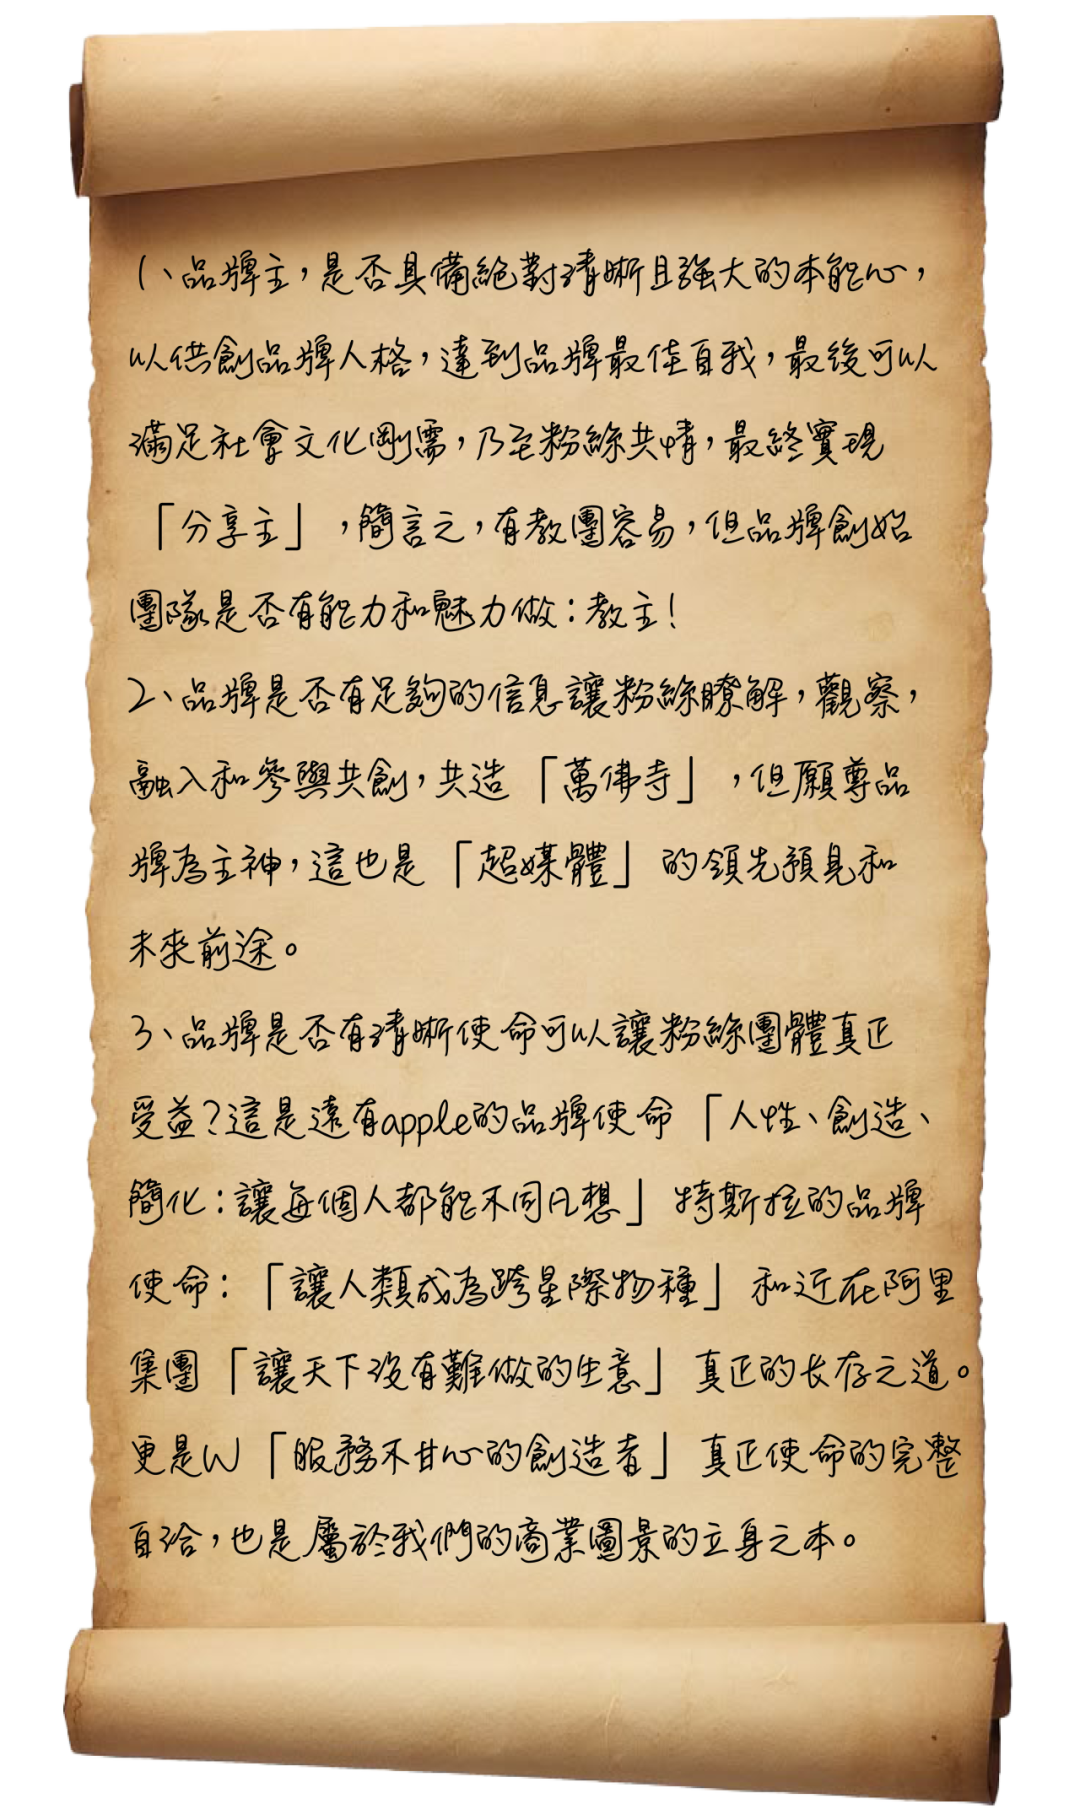 1、品牌主，是否具備絕對清晰且強大的本能心，
以供創品牌人格，達到品牌最佳自我，最後可以
滿足社會文化剛需，乃至粉絲共情，最終實現
「分享主」，簡言之，有教團容易，但品牌創始
團隊是否有能力和魅力做：教主！
2、品牌是否有足夠的信息讓粉絲瞭解，觀察，
融入和參與共創，共造「萬佛寺」，但願尊品
牌為主神，這也是「超媒體」的領先預見和
未來前途。
3、品牌是否有清晰使命可以讓粉絲團體真正
受益？這是遠有apple的品牌使命「人性、創造、
簡化：讓每個人都能不同凡想」特斯拉的品牌
使命：「讓人類成為跨星際物種」和近在阿里
集團「讓天下沒有難做的生意」真正的长存之道。
更是W「服務不甘心的創造者」真正使命的完整
自洽，也是屬於我們的商業圖景的立身之本。